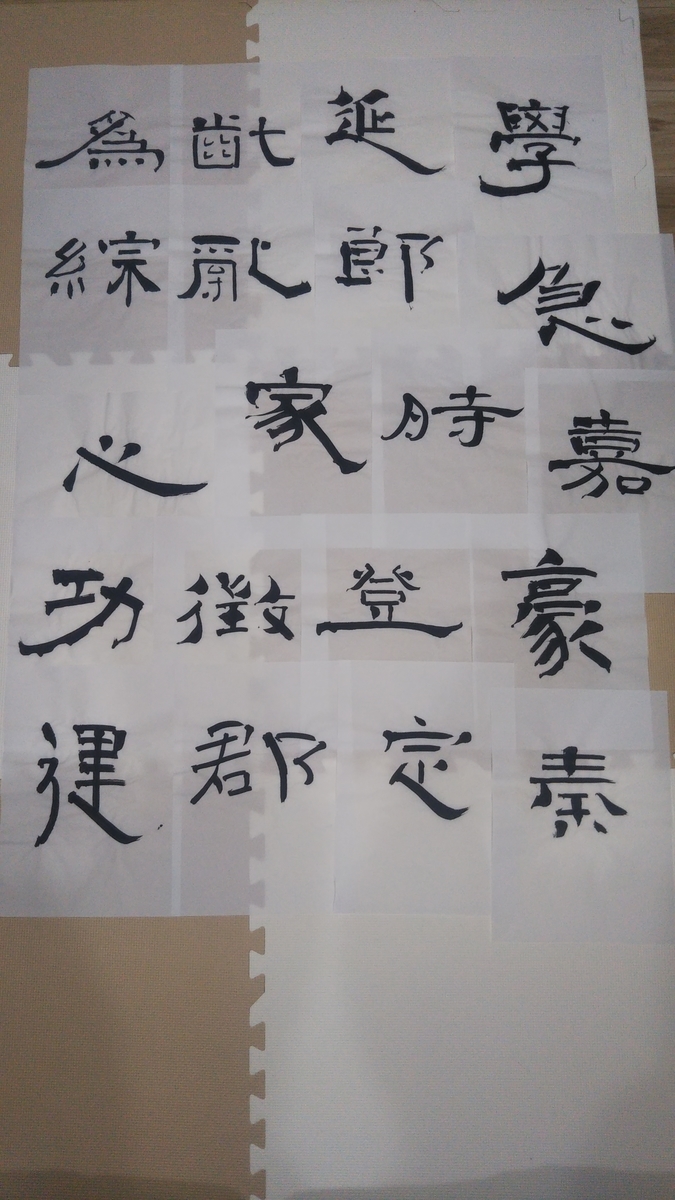 學急嘉豪秦
延郎時登定
齔亂家徵郡
爲綜心功建